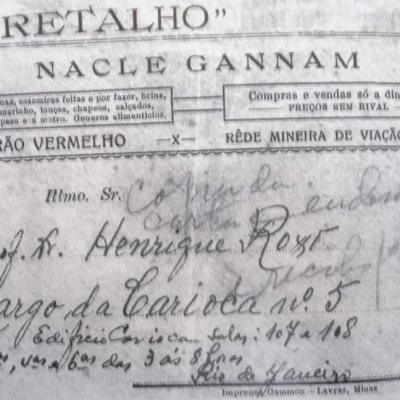 RETALHO"
NACLE GANNAM
nas, casemiras feitas e por fazer, brins,
marinho, louças, chapeos, calçados,
peso e a metro. Generos alimenticios.
Compras e vendas só a din
PREÇOS SEM RIVAL
RÃO VERMELHO —X— RÊDE MINEIRA DE VIAÇÃO
Illmo. Sr.
Prof. Dr. Henrique Roxo
Largo da Carioca nº 5
Edificio Carioca Salas: 107 e 108
das 3 ás 8 horas
Rio de Janeiro
Imprensa Gammon — Lavras, Minas